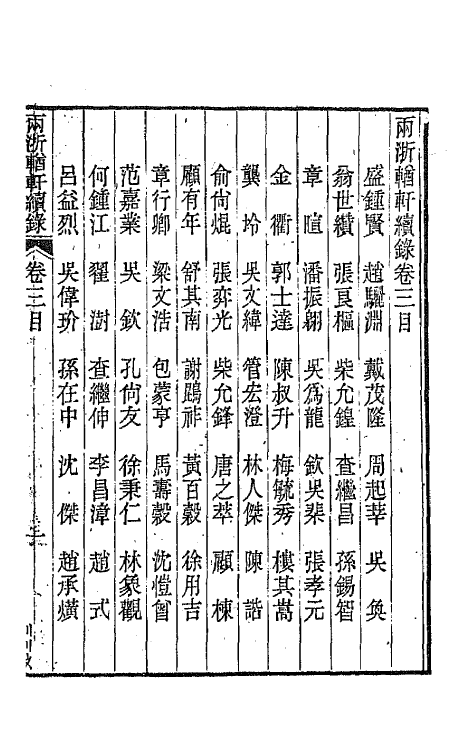 兩浙輶軒續錄卷三目
盛鍾賢 趙驪淵 戴茂隆 周起莘 吳奐
翁世續 張良樞 柴允鍠 查繼昌 孫錫智
章暄 潘振翺 吳為龍 欽吳棐 張孝元
金衢 郭士達 陳叔升 梅毓秀 樓其嵩
龔坽 吳文緯 管宏澄 林人傑 陳誥
俞尚焜 張弈光 柴允鋅 唐之萃 顧棟
顧有年 舒其南 謝鵾祚 黃百穀 徐用吉
章行卿 梁文浩 包蒙亨 馬壽穀 沈愷曾
范嘉業 吳欽 孔尚友 徐秉仁 林象觀
何鍾江 翟澍 查繼伸 李昌漳 趙式
呂益烈 吳偉玠 孫在中 沈傑 趙承爌
兩浙輶軒續錄 卷三目